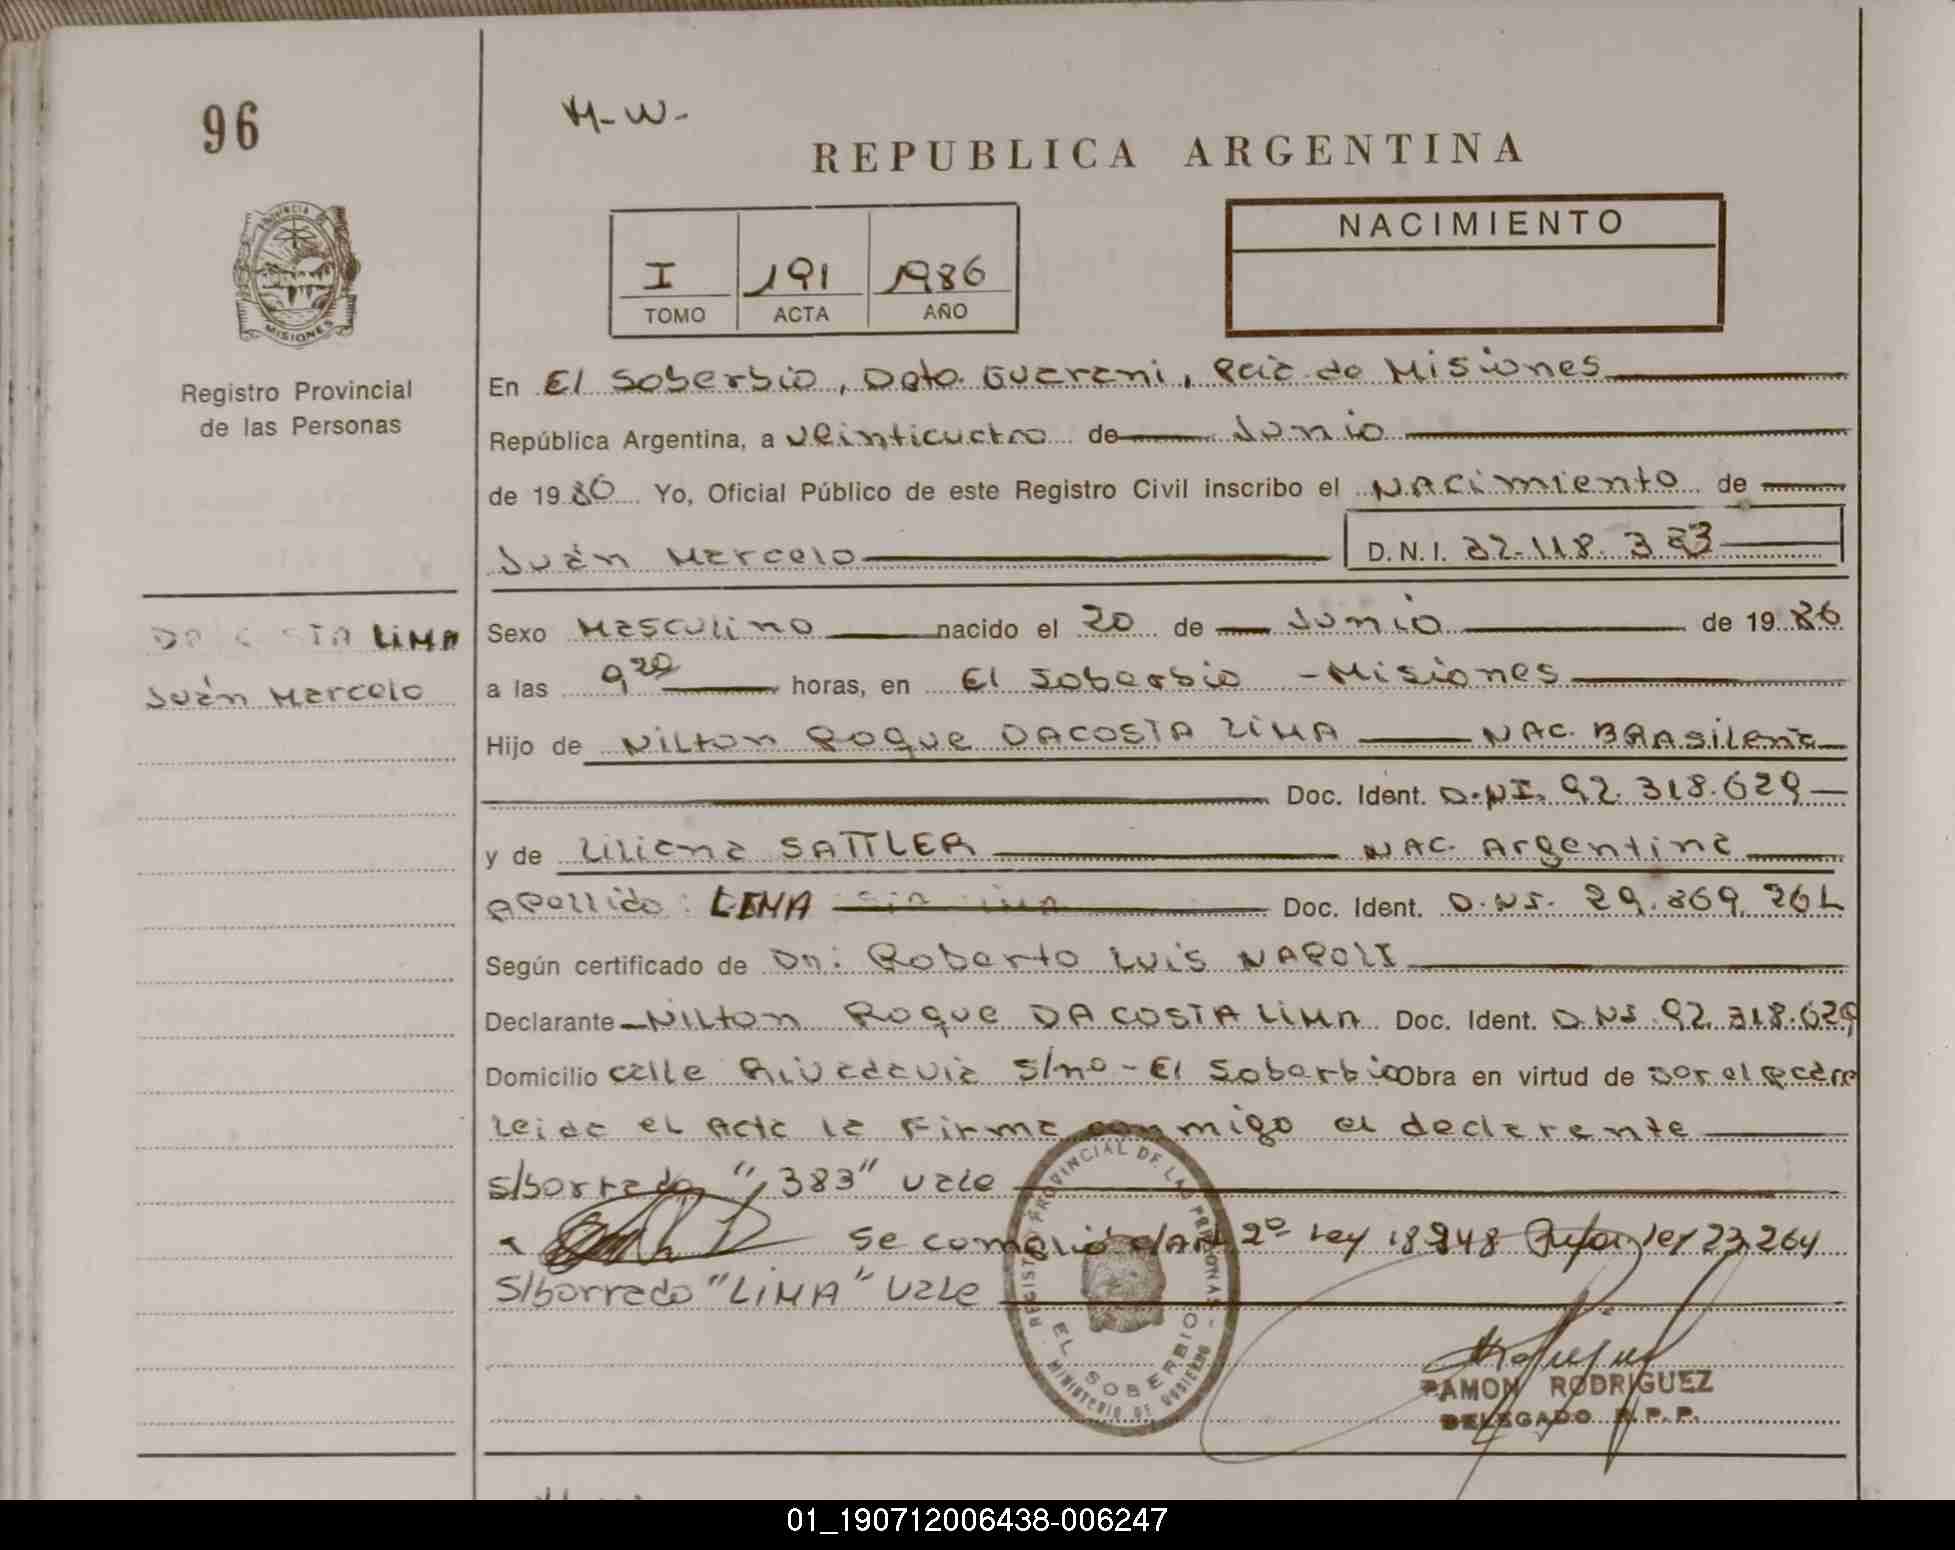 96
M-W-
REPUBLICA ARGENTINA
PROVINCIA
MISIONES
Registro Provincial
de las Personas
I 191 1986
TOMO ACTA AÑO
NACIMIENTO
En El Soberbio, Dpto. Guarani, Pcia de Misiones
República Argentina, a veinticuatro de Junio
de 1986 Yo, Oficial Público de este Registro Civil inscribo el NACimiento de
Juán Marcelo D.N.I. 32.118.383
DA COSTA LIMA
Juán Marcelo
Sexo Masculino nacido el 20 de Junio de 1986
a las 9 20 horas, en El Soberbio - Misiones
Hijo de Nilton Roque DACOSTA LIMA NAC. BRAsileña
Doc. Ident. D.NI. 92.318.629
y de Liliana SATTLER NAC. Argentina
Apellido: LIMA Doc. Ident. D.NI. 29.869.261
Según certificado de Dn: Roberto Luis NAPOLI
Declarante Nilton Roque DA COSTA LIMA Doc. Ident. D.NI. 92.318.629
Domicilio calle Rivadavia S/nº - El Soberbio Obra en virtud de ser el padre
Leida el Acta la Firma conmigo el declarante
S/borrado "383" Vale
Se cumplió c/Art 2º Ley 18248 Ley 23.264
S/borrado "LIMA" Vale
REGISTRO PROVINCIAL DE LAS PERSONAS
EL SOBERBIO
MINISTERIO DE GOBIERNO
RAMON RODRIGUEZ
DELEGADO R.P.P.
01_190712006438-006247